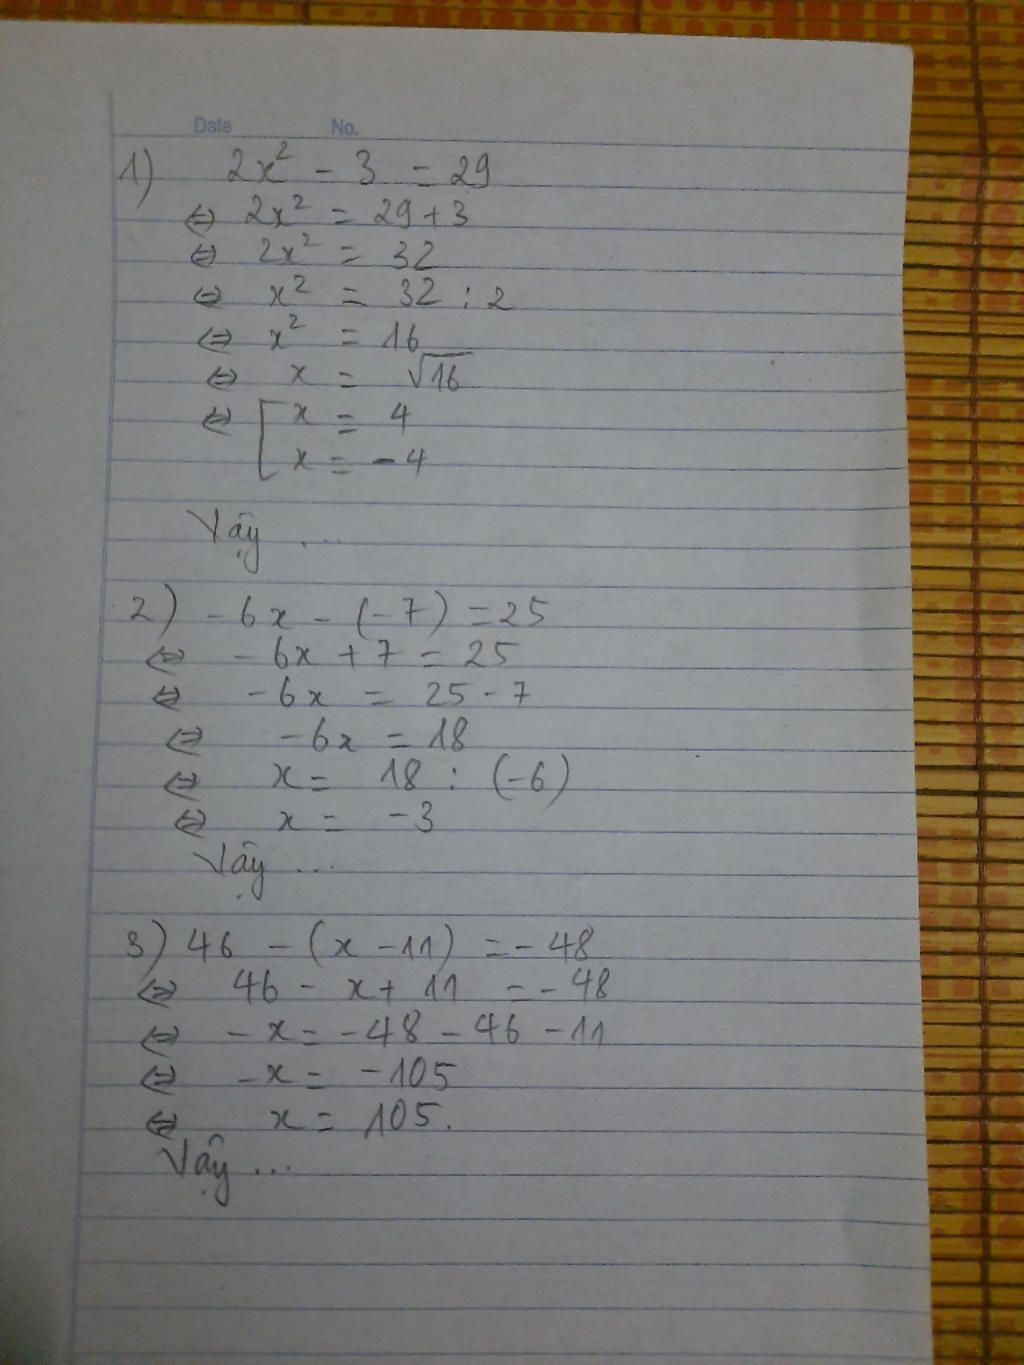 Date No.
1) 2x² - 3 = 29
⇔ 2x² = 29 + 3
⇔ 2x² = 32
⇔ x² = 32 : 2
⇔ x² = 16
⇔ x = √16
⇔ [ x = 4
x = -4
Vậy ...
2) -6x - (-7) = 25
⇔ -6x + 7 = 25
⇔ -6x = 25 - 7
⇔ -6x = 18
⇔ x = 18 : (-6)
⇔ x = -3
Vậy ...
3) 46 - (x - 11) = -48
⇔ 46 - x + 11 = -48
⇔ -x = -48 - 46 - 11
⇔ -x = -105
⇔ x = 105.
Vậy ...